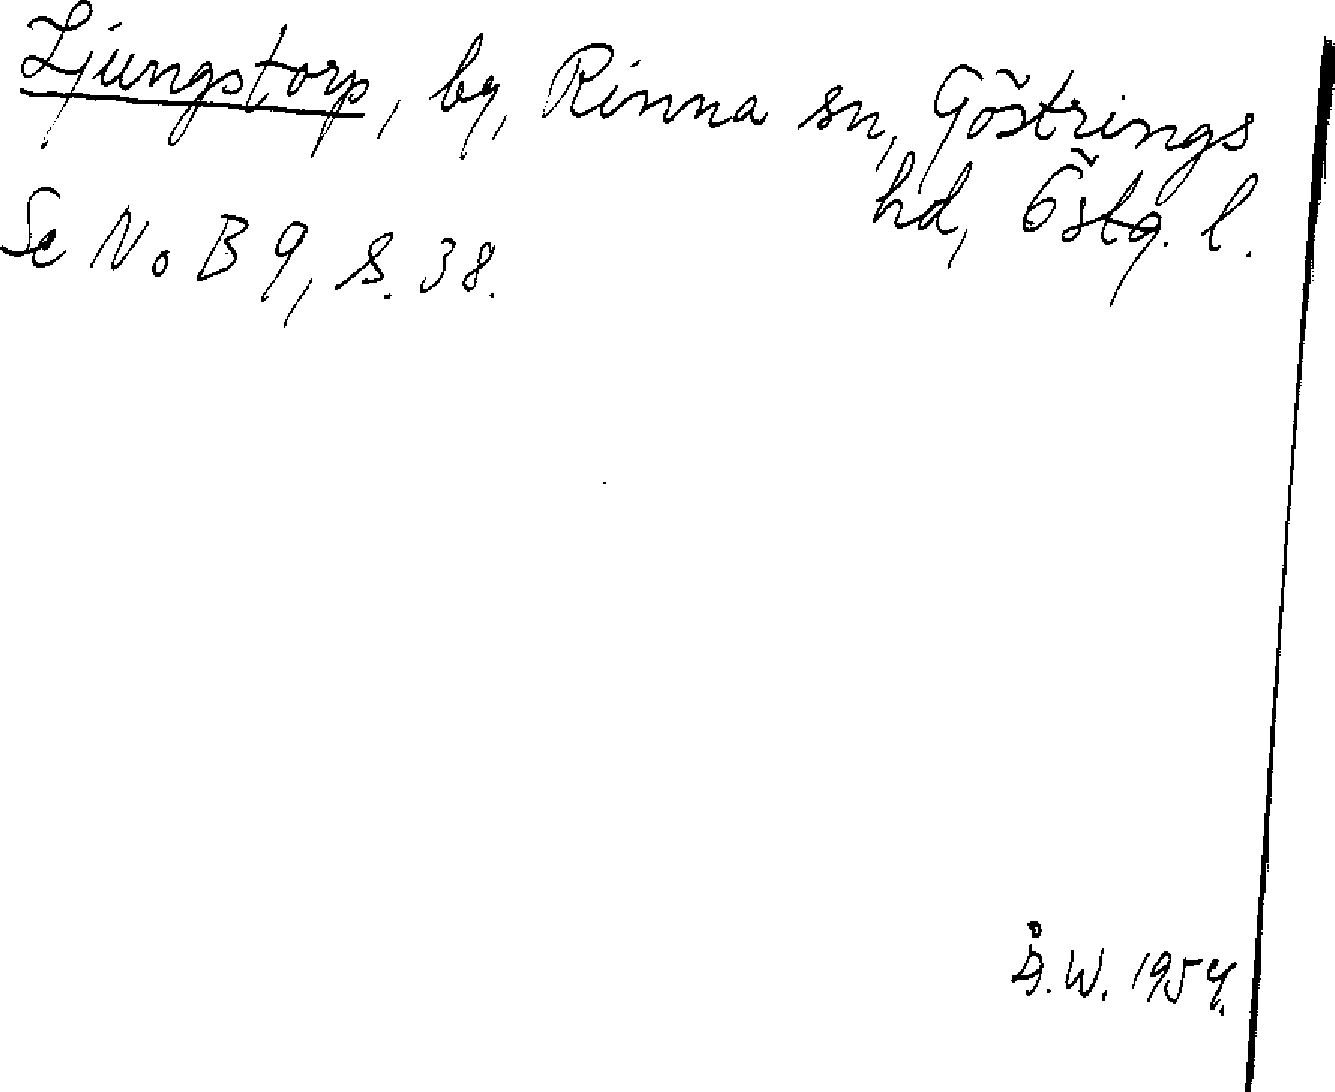 Ljungstorp, by, Rinna sn, Göstrings
hd, Östg. l.
Se NoB 9, s. 38.
Å.W. 1954.